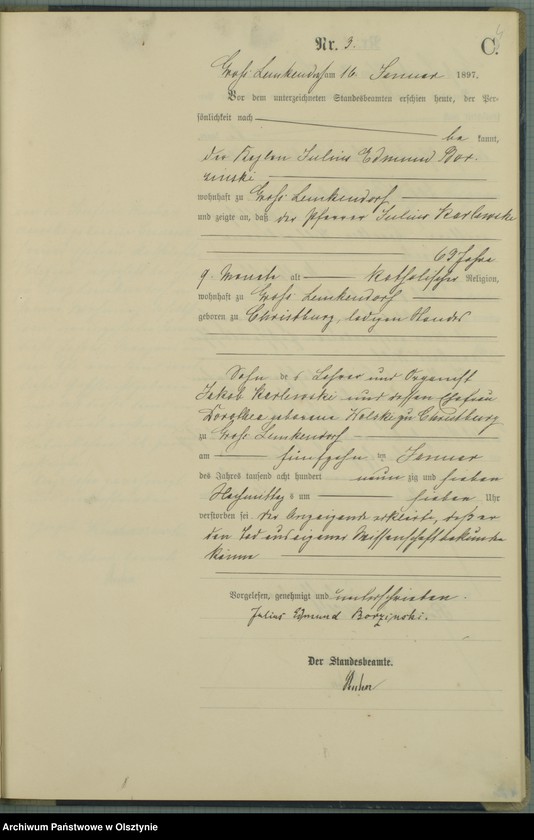 Nr. 3.
C.
Groß Lemkendorf am 16. Januar 1897.
Vor dem unterzeichneten Standesbeamten erschien heute, der Per-
sönlichkeit nach
be kannt,
der Kaplan Julius Edmund Bor-
zinski
wohnhaft zu Groß Lemkendorf
und zeigte an, daß der Pfarrer Julius Karlewski
69 Jahre
9 Monate alt katholischer Religion,
wohnhaft zu Groß Lemkendorf
geboren zu Christburg, ledigen Standes
Sohn des Lehrer und Organist
Jakob Karlewski und dessen Ehefrau
Dorothea geborene Kolski zu Christburg
zu Groß Lemkendorf
am fünfzehn ten Januar
des Jahres tausend acht hundert neun zig und sieben
Nachmittags um sieben Uhr
verstorben sei der Anzeigende erklärte, daß er
den Tod aus eigener Wissenschaft bekunden
könne
Vorgelesen, genehmigt und unterschrieben.
Julius Edmund Borzinski.
Der Standesbeamte.
Archiwum Państwowe w Olsztynie